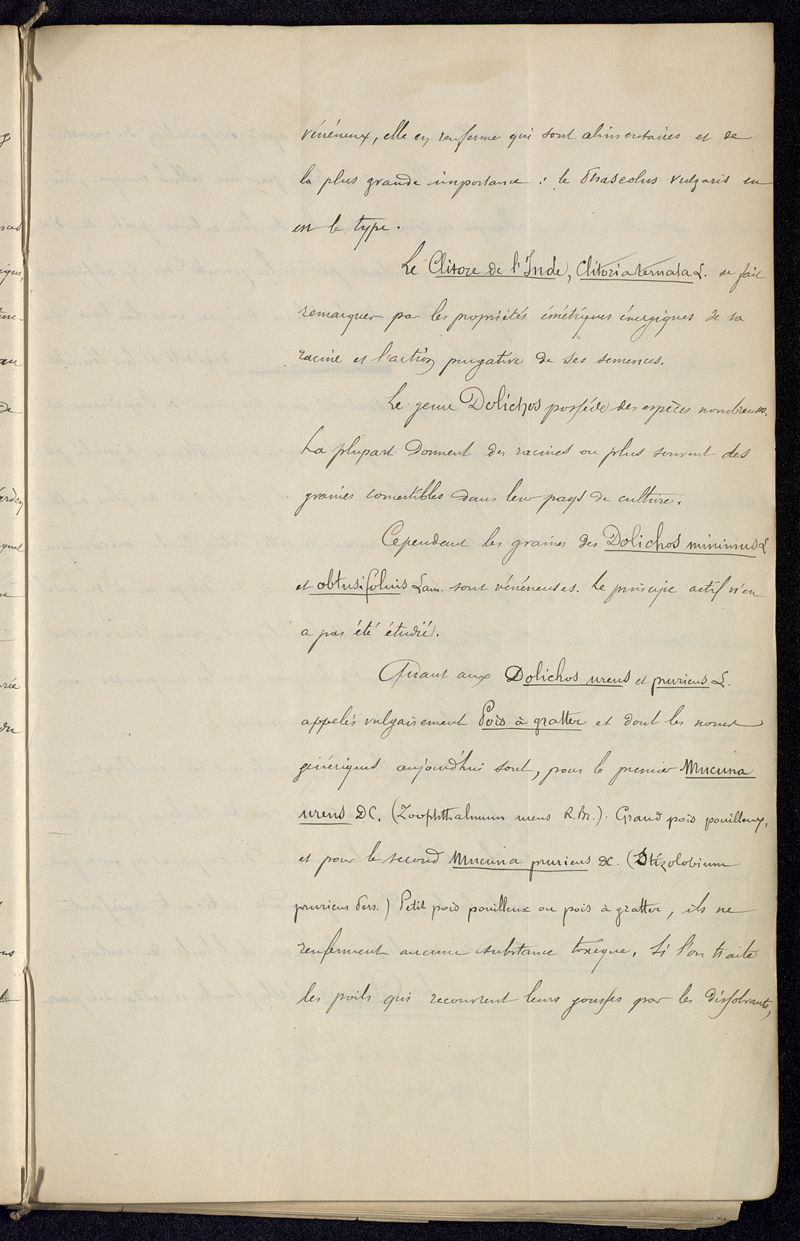 vénéneux, elle en renferme qui sont alimentaires et de
la plus grande importance : le Phaseolus vulgaris en
est le type.
Le Clitore de l'Inde, Clitoria ternata L. se fait
remarquer par les propriétés émétiques énergiques de sa
racine et l'action purgative de ses semences.
Le genre Dolichos possède des espèces nombreuses.
La plupart donnent des racines ou plus souvent des
graines comestibles dans leur pays de culture.
Cependant les graines des Dolichos minimus L.
et obtusifolius Lam. sont vénéneuses. Le principe actif n'en
a pas été étudié.
Quant aux Dolichos urens et pruriens L.
appelés vulgairement Pois à gratter et dont les noms
génériques aujourd'hui sont, pour le premier Mucuna
urens DC. (Zoophthalmum urens R. Br.). Grand pois pouilleux,
et pour le second Mucuna pruriens DC. (Stizolobium
pruriens Pers.) Petit pois pouilleux ou pois à gratter, ils ne
renferment aucune substance toxique. Si l'on traite
les poils qui recouvrent leurs gousses par les dissolvants,